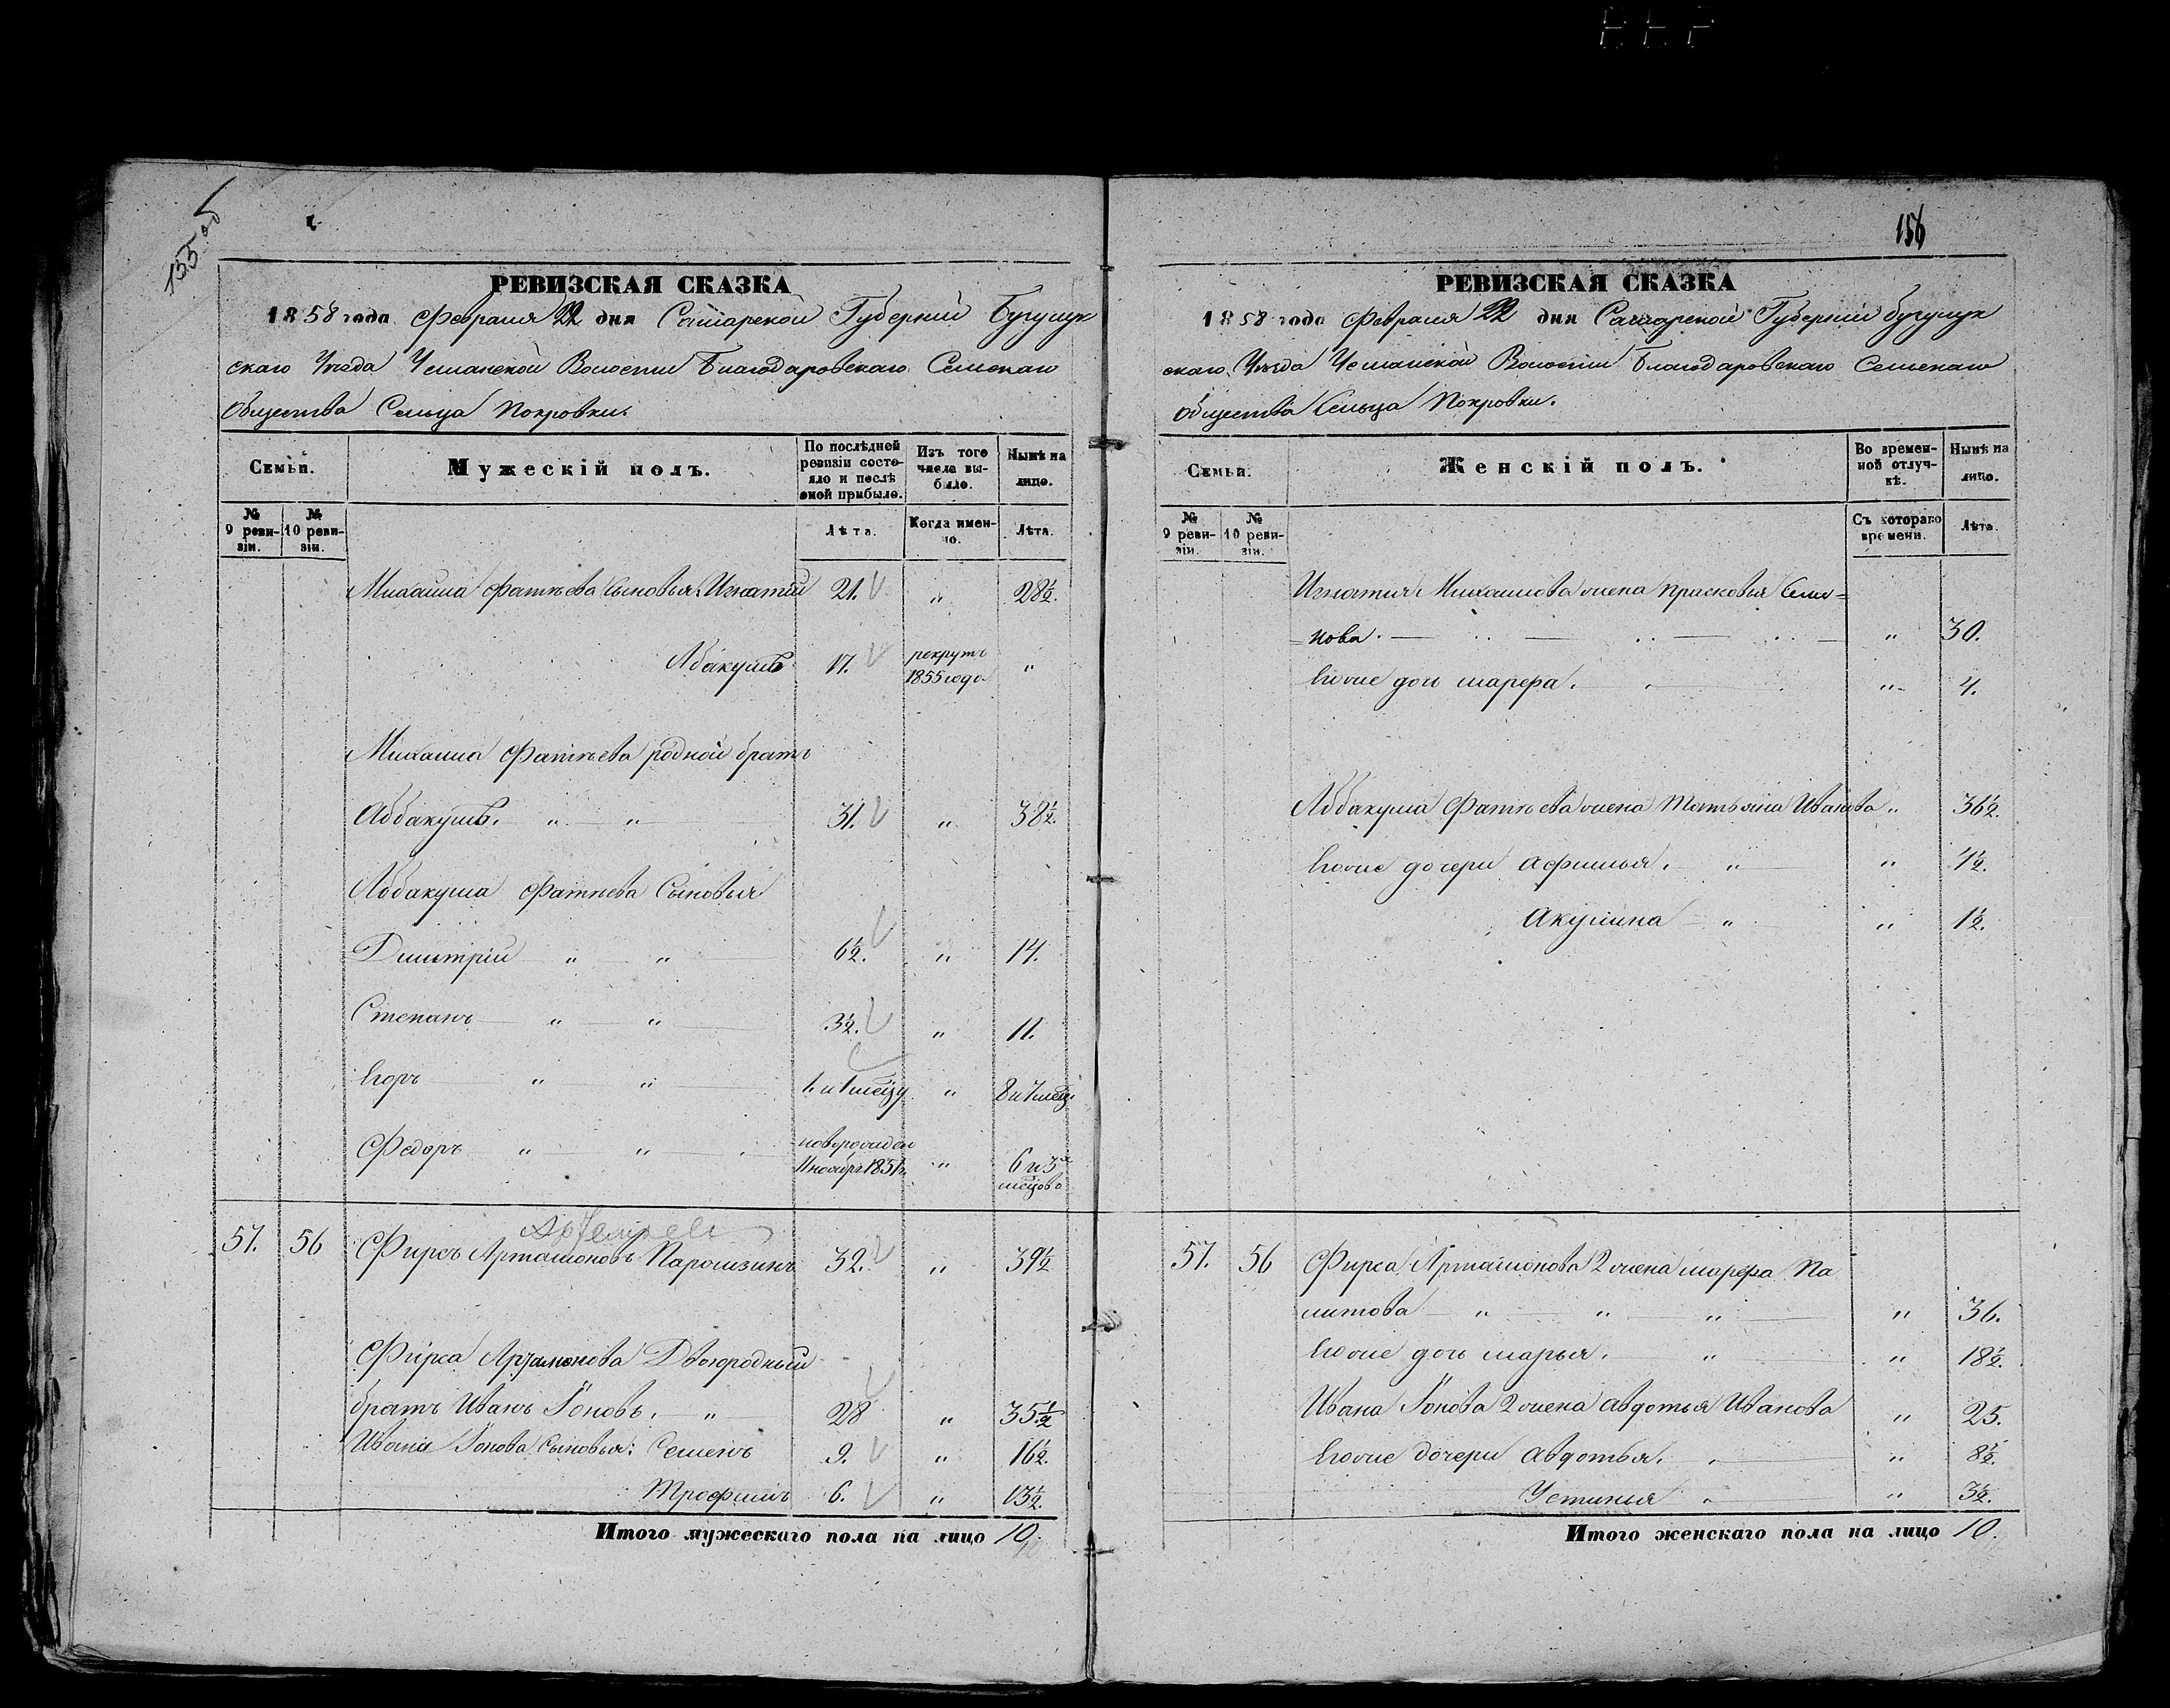 155 об
РЕВИЗСКАЯ СКАЗКА
1858 года Февраля 22 дня Самарской Губерніи Бугульм
скаго Уѣзда Чеманской Волости Благодаровскаго Сельскаго
Общества Сельца Покровки.
Семьи.
Мужескій полъ.
По послѣдней ревизіи состояло и послѣ оной прибыло.
Изъ того числа выбыло.
Нынѣ на лицо.
№ 9 ревизіи.
№ 10 ревизіи.
Лѣта.
Когда именно.
Лѣта.
Михаила Фатѣева Сыновья: Игнатій 21. „ 28½.
Абакумъ 17. рекрутъ 1855 года „
Михаила Фатѣева родной братъ
Аббакумъ. „ „ 31. „ 38½.
Аббакума Фатѣева Сыновья
Дмитрій „ „ 6½. „ 14.
Степанъ „ „ 3½. „ 11.
Егоръ „ „ 1. и 1 мѣсяцу „ 8 и 7 мѣсяц.
Федоръ „ „ новорожден 11 ноября 1851 г. „ 6 и 3х мѣсяцовъ
57. 56 Фирсъ Артамоновъ Паромзинъ 32. „ 39½
Фирса Артамонова Двоюродный
братъ Иванъ Іоновъ. „ 28 „ 35½
Ивана Іонова Сыновья: Семенъ 9. „ 16½.
Трофимъ 6. „ 13½.
Итого мужескаго пола на лицо 10.
156
РЕВИЗСКАЯ СКАЗКА
1858 года Февраля 22 дня Самарской Губерніи Бугульм
скаго Уѣзда Чеманской Волости Благодаровскаго Сельскаго
Общества Сельца Покровки.
Семьи.
Женскій полъ.
Во временной отлучкѣ.
Нынѣ на лицо.
№ 9 ревизіи.
№ 10 ревизіи.
Съ котораго времени.
Лѣта.
Игнатія Михаилова жена Прасковья Семе=
=нова. „ 30.
Егоже дочь Марфа. „ 4.
Аббакума Фатѣева жена Татьяна Иванова „ 36½.
Егоже дочери Афимья. „ „ 4½.
Акулина „ „ 1½.
57. 56 Фирса Артамонова 2 жена Марфа Па
литова „ „ „ „ 36.
Егоже дочь Марья. „ „ 18½.
Ивана Іонова 2 жена Авдотья Иванова „ 25.
Егоже дочери Авдотья. „ „ 8½.
Устинья „ „ 3½.
Итого женскаго пола на лицо 10.